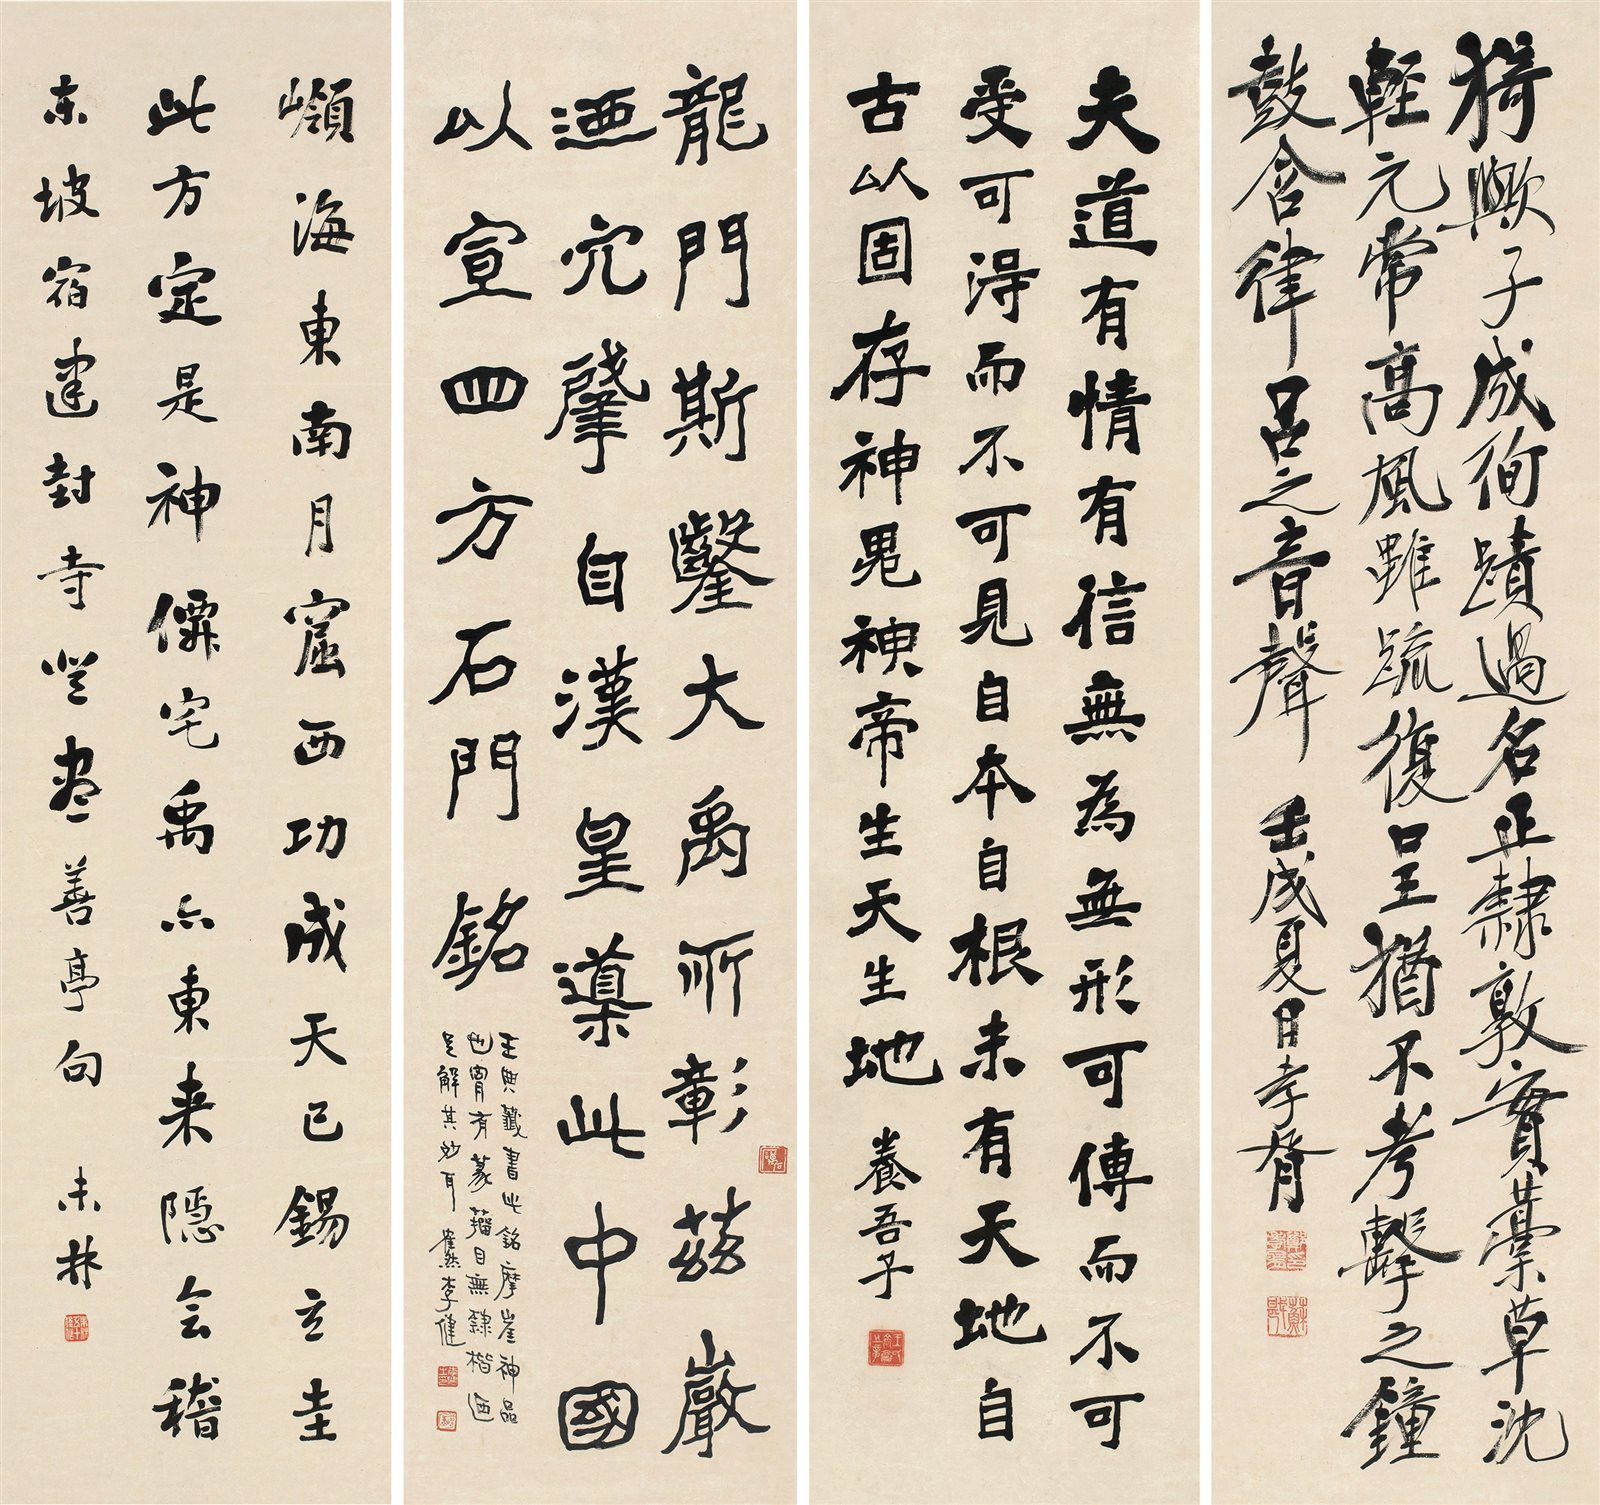 猗歟子成徇蹟過名正隸敦實藁草沈
輕元常高風雖疏復呈猶不考擊之鐘
鼓含律呂之音聲 壬戌夏日孝胥
夫道有情有信無為無形可傳而不可
受可得而不可見自本自根未有天地自
古以固存神鬼神帝生天生地 養吾子
龍門斯鑿大禹所彰茲巖
迺穴肇自漢皇導此中國
以宣四方石門銘
王典籤書此銘摩崖神品
也胷有篆籀目無隸楷迺
足解其妙耳 隺然李健
嶺海東南月窟西功成天已錫玄圭
此方定是神僊宅禹亦東来隐会稽
东坡宿建封寺登盡善亭句 未林